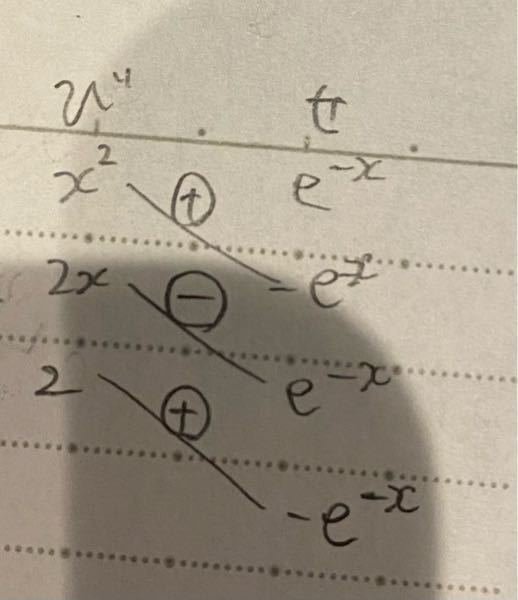 x² ⊕ e⁻ˣ
2x ⊖ -e⁻ˣ
2 ⊕ e⁻ˣ
-e⁻ˣ